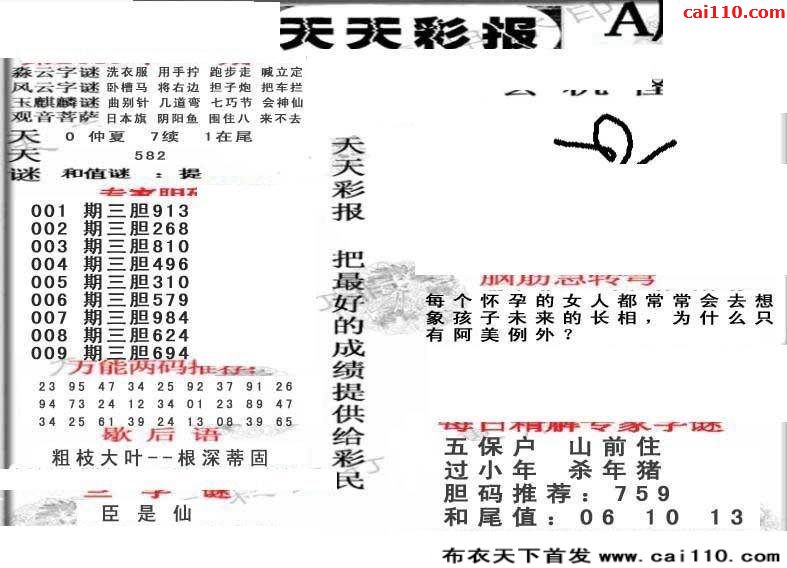 cai110.com
天天彩报
森云字谜 洗衣服 用手拧 跑步走 喊立定
风云字谜 卧槽马 将右边 担子炮 把车拦
玉麒麟谜 曲别针 几道弯 七巧节 会神仙
观音菩萨 日本旗 阴阳鱼 围住八 来不去
天 0 仲夏 7续 1在尾
天 582
谜 和值谜 : 提
专家胆码
001 期三胆913
002 期三胆268
003 期三胆810
004 期三胆496
005 期三胆310
006 期三胆579
007 期三胆984
008 期三胆624
009 期三胆694
万能两码推荐:
23 95 47 34 25 92 37 91 26
94 73 24 12 34 01 23 89 47
34 25 61 39 24 13 08 39 65
歇后语
粗枝大叶--根深蒂固
三字谜
臣是仙
天天彩报 把最好的成绩提供给彩民
脑筋急转弯
每个怀孕的女人都常常会去想
象孩子未来的长相，为什么只
有阿美例外？
每日精解专家字谜
五保户 山前住
过小年 杀年猪
胆码推荐：759
和尾值：06 10 13
布衣天下首发 www.cai110.com